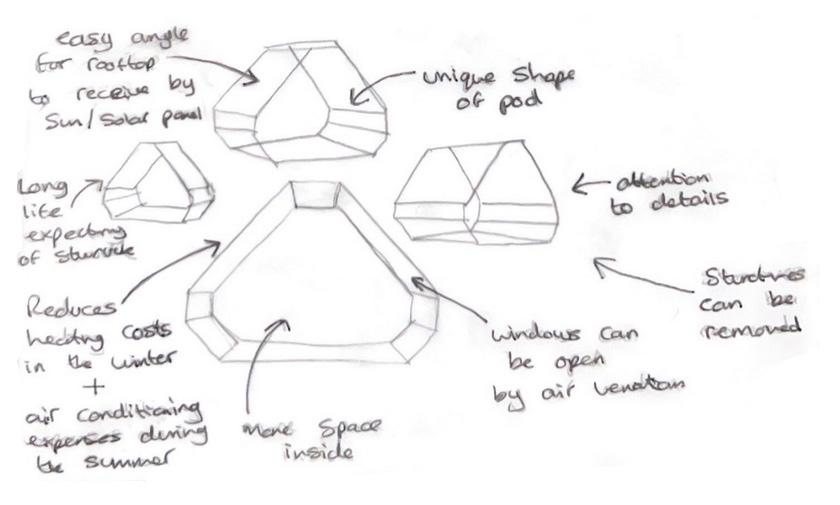 easy angle
for rooftop
to receive by
Sun/Solar panel
unique Shape
of pod
Long
life
expecting
of
attention
to details
Reduces
heating costs
in the winter
+
air conditioning
expenses during
the summer
More Space
inside
windows can
be open
by air
Structures
can be
removed